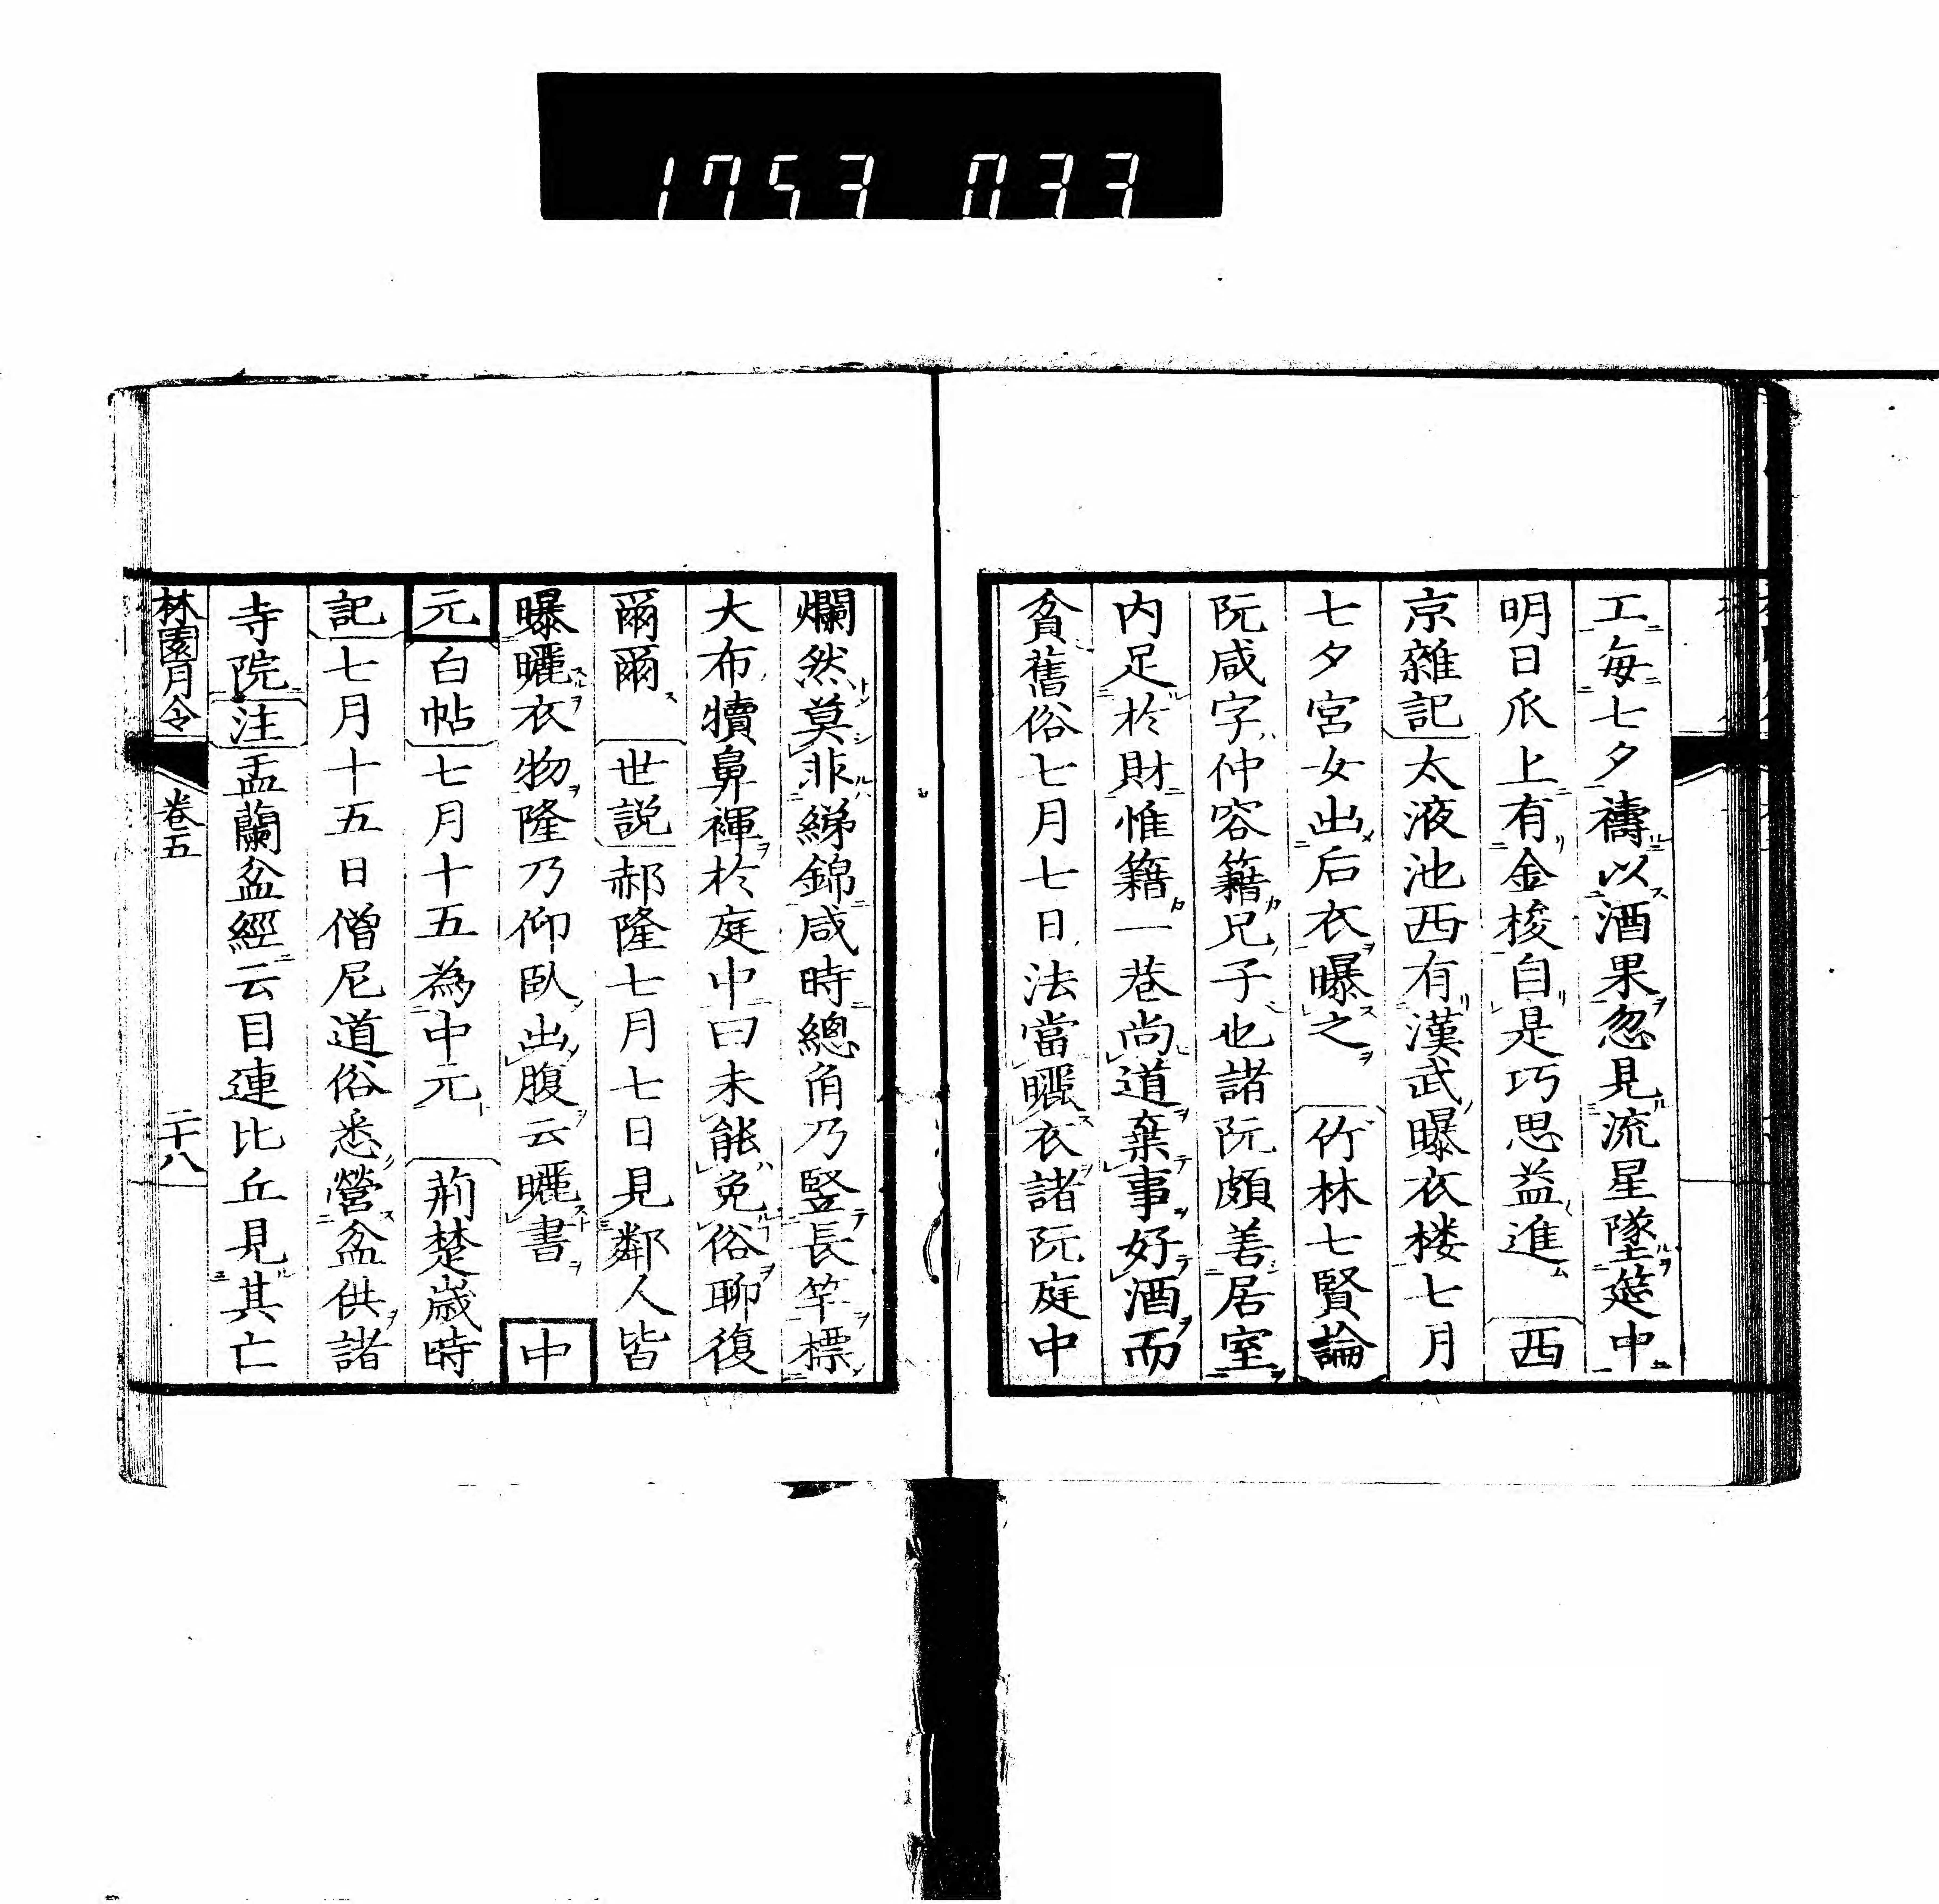 1753 033
工毎七夕禱以酒果忽見流星墜筵中
明日爪上有金梭自是巧思益進 西
京雜記太液池西有漢武曝衣楼七月
七夕宮女出后衣曝之 竹林七賢論
阮咸字仲容籍兄子也諸阮頗善居室
内足於財惟籍一巷尚道棄事好酒而
貧舊俗七月七日法當曬衣諸阮庭中
爛然莫非綈錦咸時總角乃竪長竿標
大布犢鼻褌於庭中曰未能免俗聊復
爾爾 世説郝隆七月七日見鄰人皆
曝曬衣物隆乃仰臥出腹云曬書 中
元白帖七月十五為中元 荊楚歳時
記七月十五日僧尼道俗悉營盆供諸
寺院注盂蘭盆經云目連比丘見其亡
林園月令 卷五 二十八